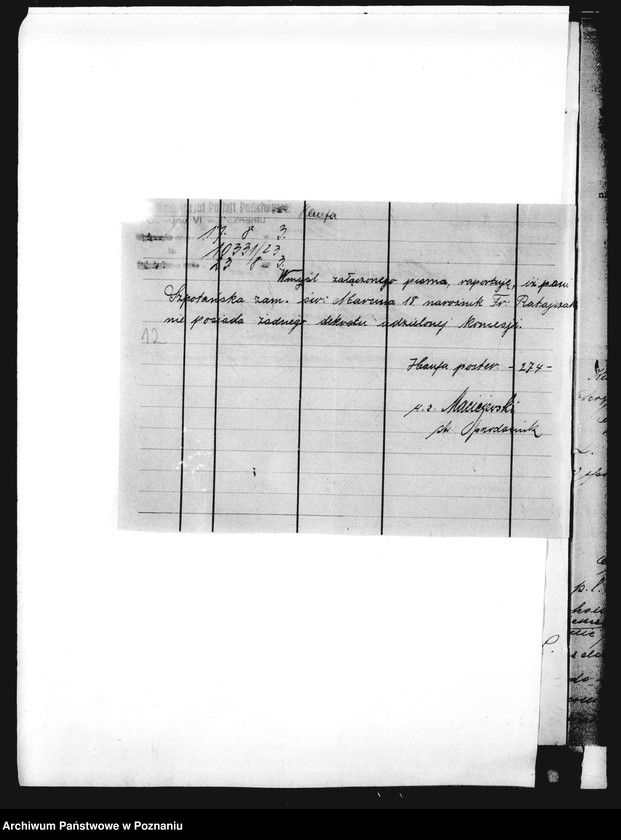 Haufa
VI w Poznaniu
17. 8 3.
10331/23
23 8 - 3.
Wmyśl załączonego pisma, raportuję, iż pani
Szpotańska zam. św: Marcina 18 narożnik Fr. Ratajczaka
nie posiada żadnego dekretu udzielonej koncesji.
12
Haufa poster. - 274 -
Maciejewski
st. przodownik
Archiwum Państwowe w Poznaniu